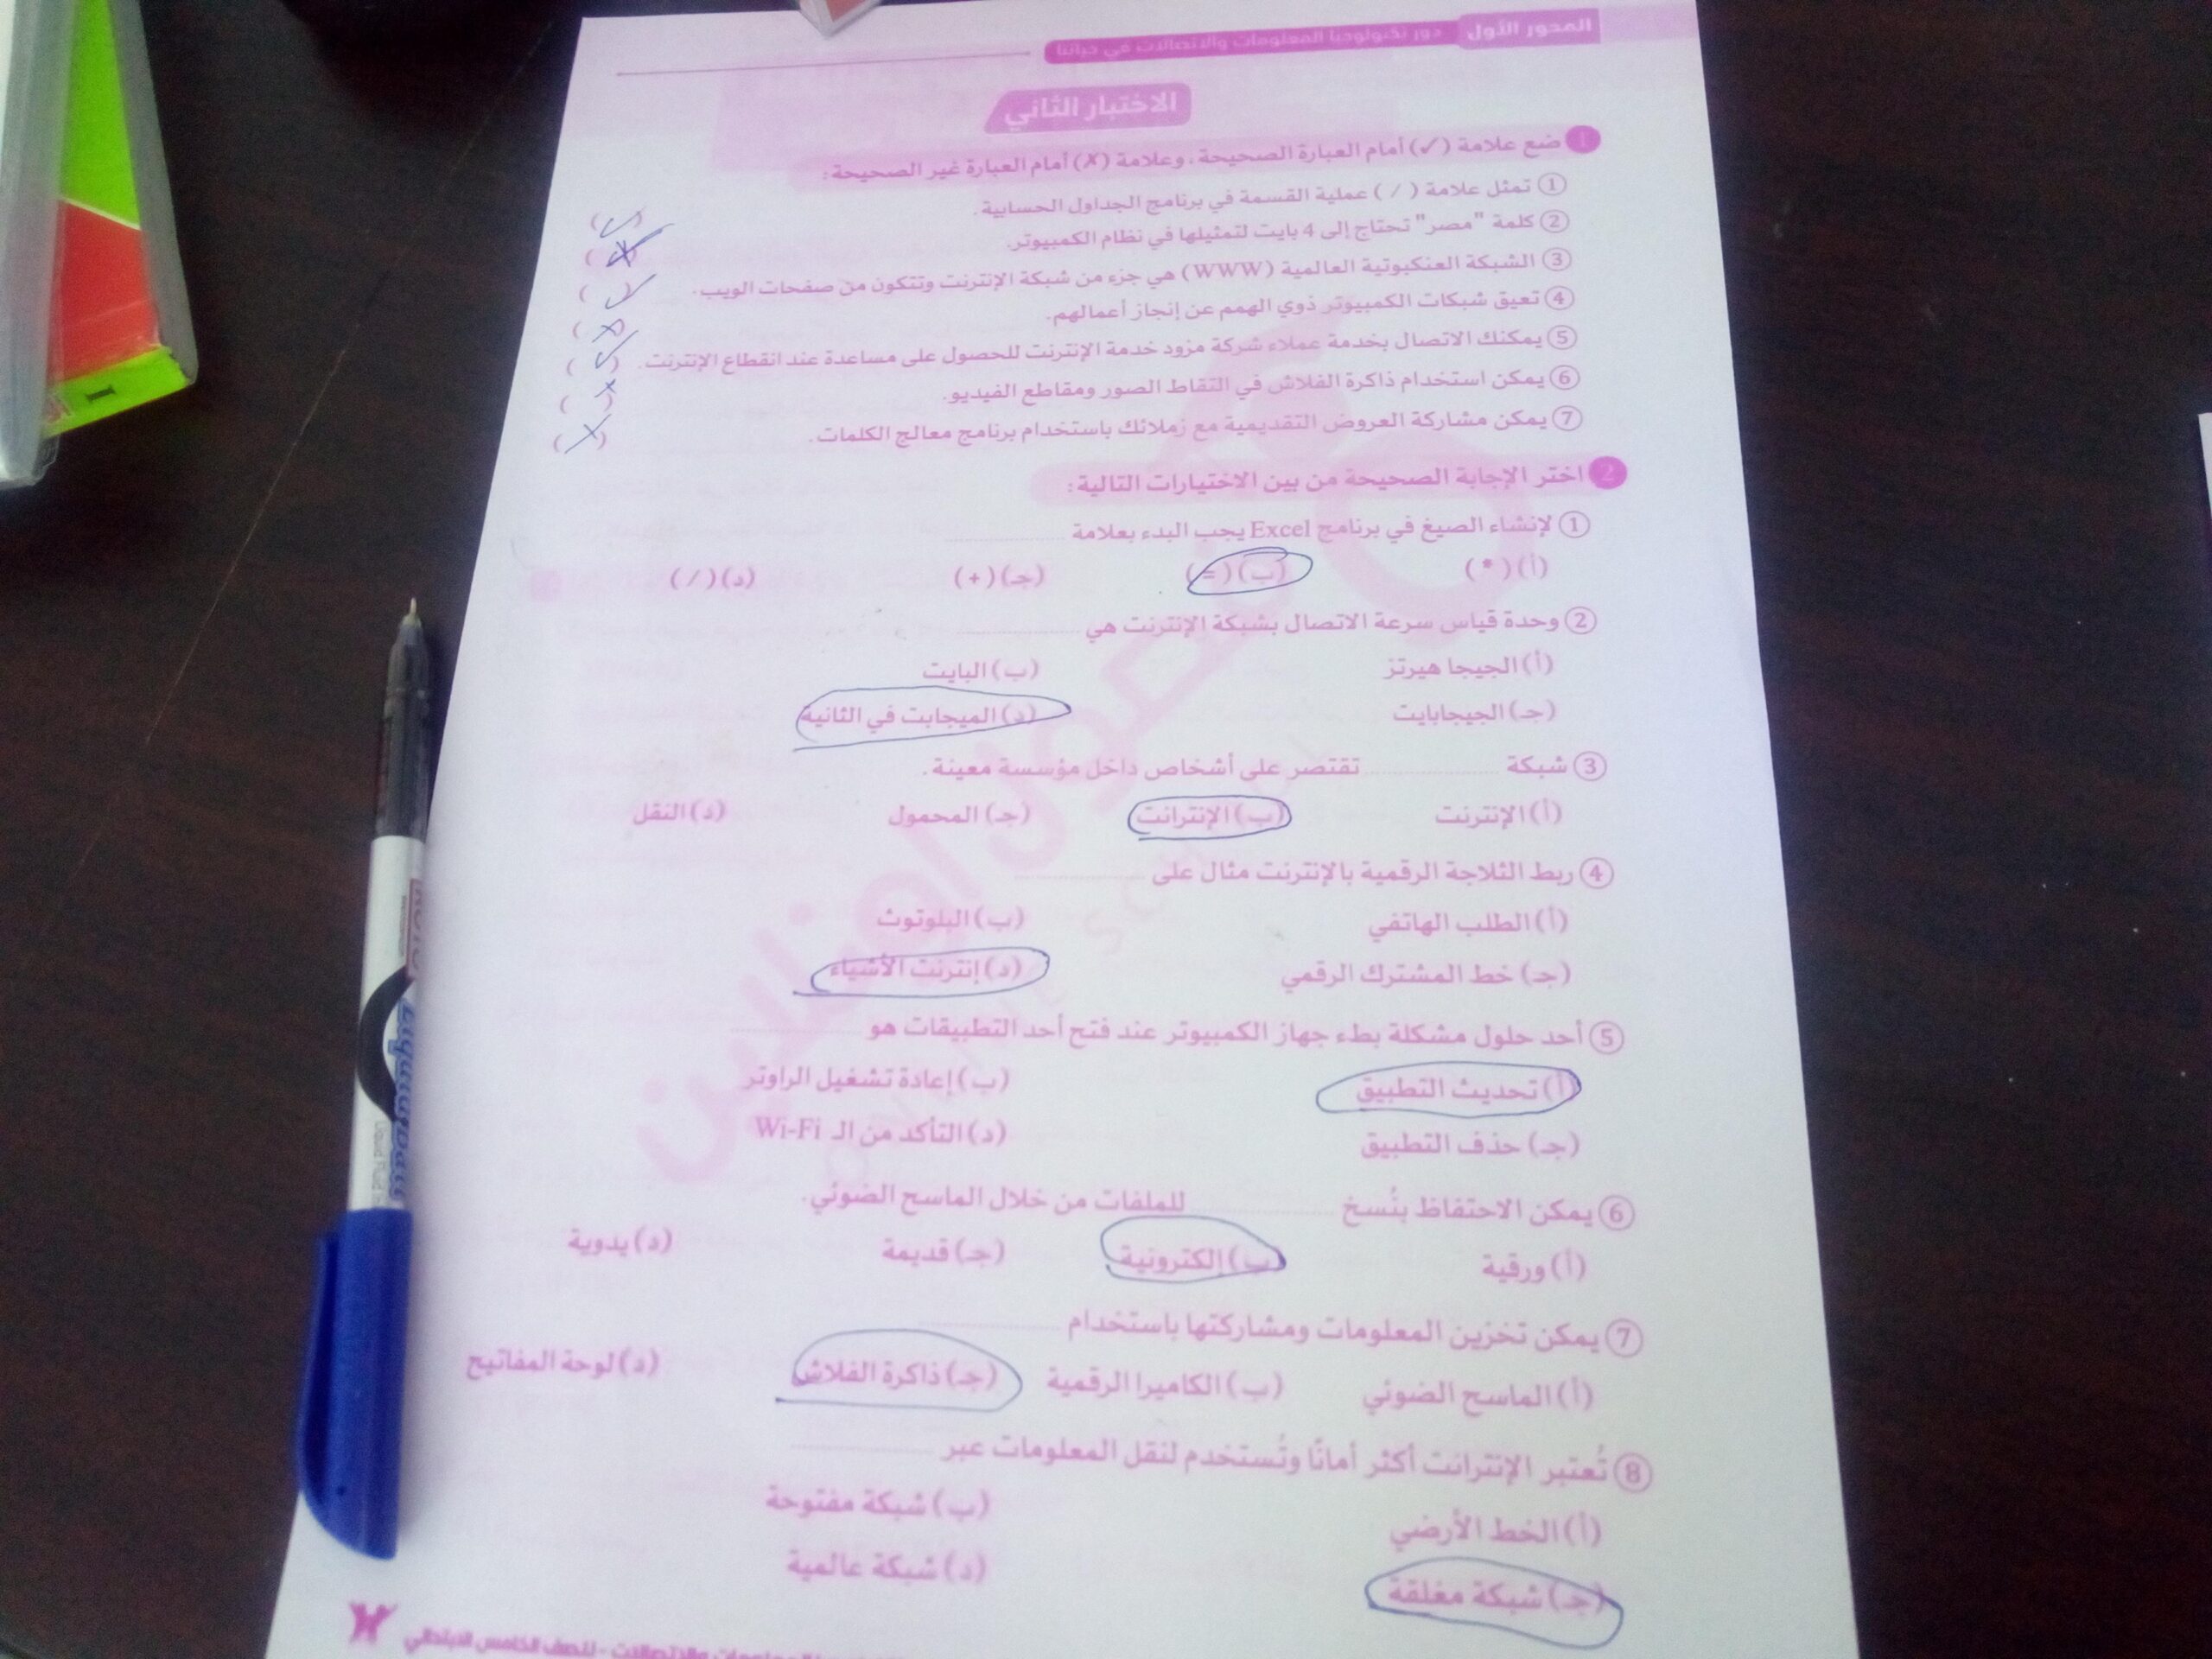 المحور الأول دور تكنولوجيا المعلومات والاتصالات في حياتنا
الاختبار الثاني
1 ضع علامة (✓) أمام العبارة الصحيحة، وعلامة (✗) أمام العبارة غير الصحيحة:
① تمثل علامة ( / ) عملية القسمة في برنامج الجداول الحسابية. (✓)
② كلمة "مصر" تحتاج إلى 4 بايت لتمثيلها في نظام الكمبيوتر. (✗)
③ الشبكة العنكبوتية العالمية (WWW) هي جزء من شبكة الإنترنت وتتكون من صفحات الويب. (✓)
④ تعيق شبكات الكمبيوتر ذوي الهمم عن إنجاز أعمالهم. (✗)
⑤ يمكنك الاتصال بخدمة عملاء شركة مزود خدمة الإنترنت للحصول على مساعدة عند انقطاع الإنترنت. (✓)
⑥ يمكن استخدام ذاكرة الفلاش في التقاط الصور ومقاطع الفيديو. (✗)
⑦ يمكن مشاركة العروض التقديمية مع زملائك باستخدام برنامج معالج الكلمات. (✗)
2 اختر الإجابة الصحيحة من بين الاختيارات التالية:
① لإنشاء الصيغ في برنامج Excel يجب البدء بعلامة ..........
(أ) (*) (ب) (=) (جـ) (+) (د) (/)
② وحدة قياس سرعة الاتصال بشبكة الإنترنت هي ..........
(أ) الجيجا هيرتز (ب) البايت
(جـ) الجيجابايت (د) الميجابت في الثانية
③ شبكة .......... تقتصر على أشخاص داخل مؤسسة معينة.
(أ) الإنترنت (ب) الإنترانت (جـ) المحمول (د) النقل
④ ربط الثلاجة الرقمية بالإنترنت مثال على ..........
(أ) الطلب الهاتفي (ب) البلوتوث
(جـ) خط المشترك الرقمي (د) إنترنت الأشياء
⑤ أحد حلول مشكلة بطء جهاز الكمبيوتر عند فتح أحد التطبيقات هو ..........
(أ) تحديث التطبيق (ب) إعادة تشغيل الراوتر
(جـ) حذف التطبيق (د) التأكد من الـ Wi-Fi
⑥ يمكن الاحتفاظ بنُسخ .......... للملفات من خلال الماسح الضوئي.
(أ) ورقية (ب) إلكترونية (جـ) قديمة (د) يدوية
⑦ يمكن تخزين المعلومات ومشاركتها باستخدام ..........
(أ) الماسح الضوئي (ب) الكاميرا الرقمية (جـ) ذاكرة الفلاش (د) لوحة المفاتيح
⑧ تُعتبر الإنترانت أكثر أمانًا وتُستخدم لنقل المعلومات عبر ..........
(أ) الخط الأرضي (ب) شبكة مفتوحة
(جـ) شبكة مغلقة (د) شبكة عالمية
المعلومات والاتصالات - للصف الخامس الابتدائي